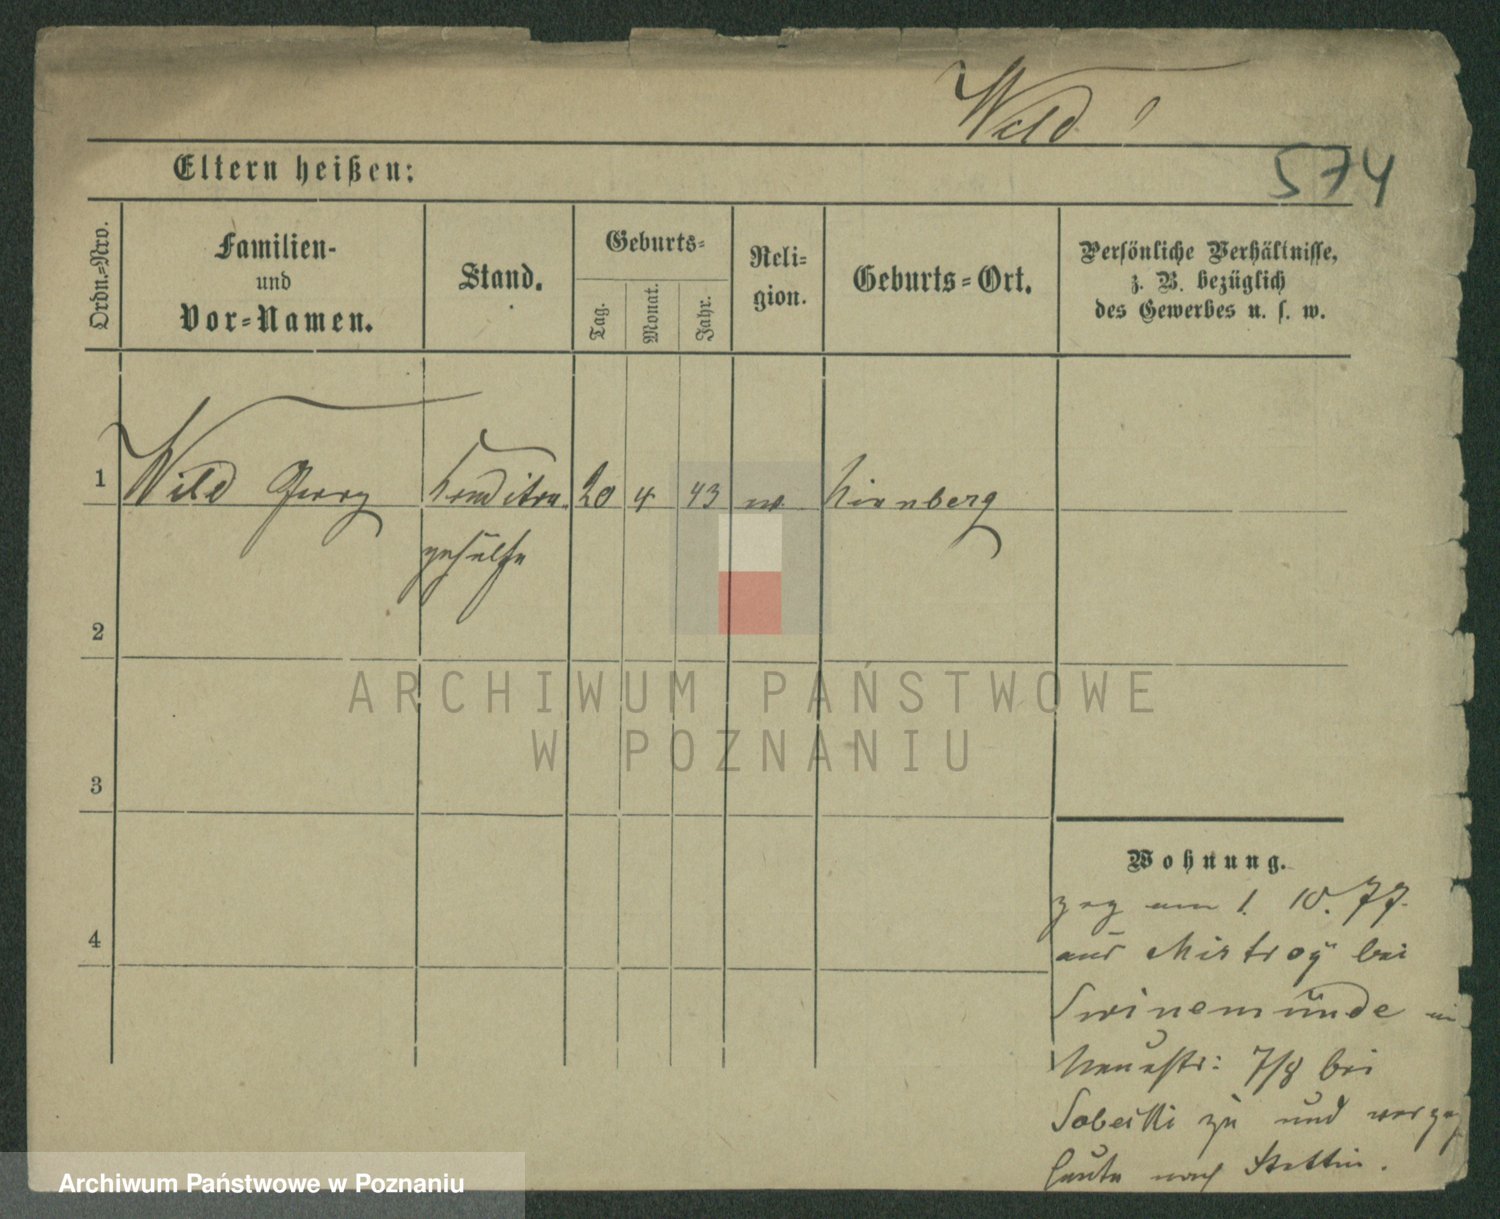 Wild
574
Eltern heißen:
Ordn.-Nro.
Familien-
und
Vor-Namen.
Stand.
Geburts-
Tag.
Monat.
Jahr.
Reli-
gion.
Geburts-Ort.
Persönliche Verhältnisse,
z. B. bezüglich
des Gewerbes u. s. w.
1 Wild Georg Konditor 20 4 43 Nürnberg
gehülfe
2
3
4
Wohnung.
zog am 1. 10. 77.
aus Mistroy bei
Swinemünde
Neuestr: 7/8 bei
Sobeski zu und verzog
heute nach Stettin.
ARCHIWUM PAŃSTWOWE
W POZNANIU
Archiwum Państwowe w Poznaniu